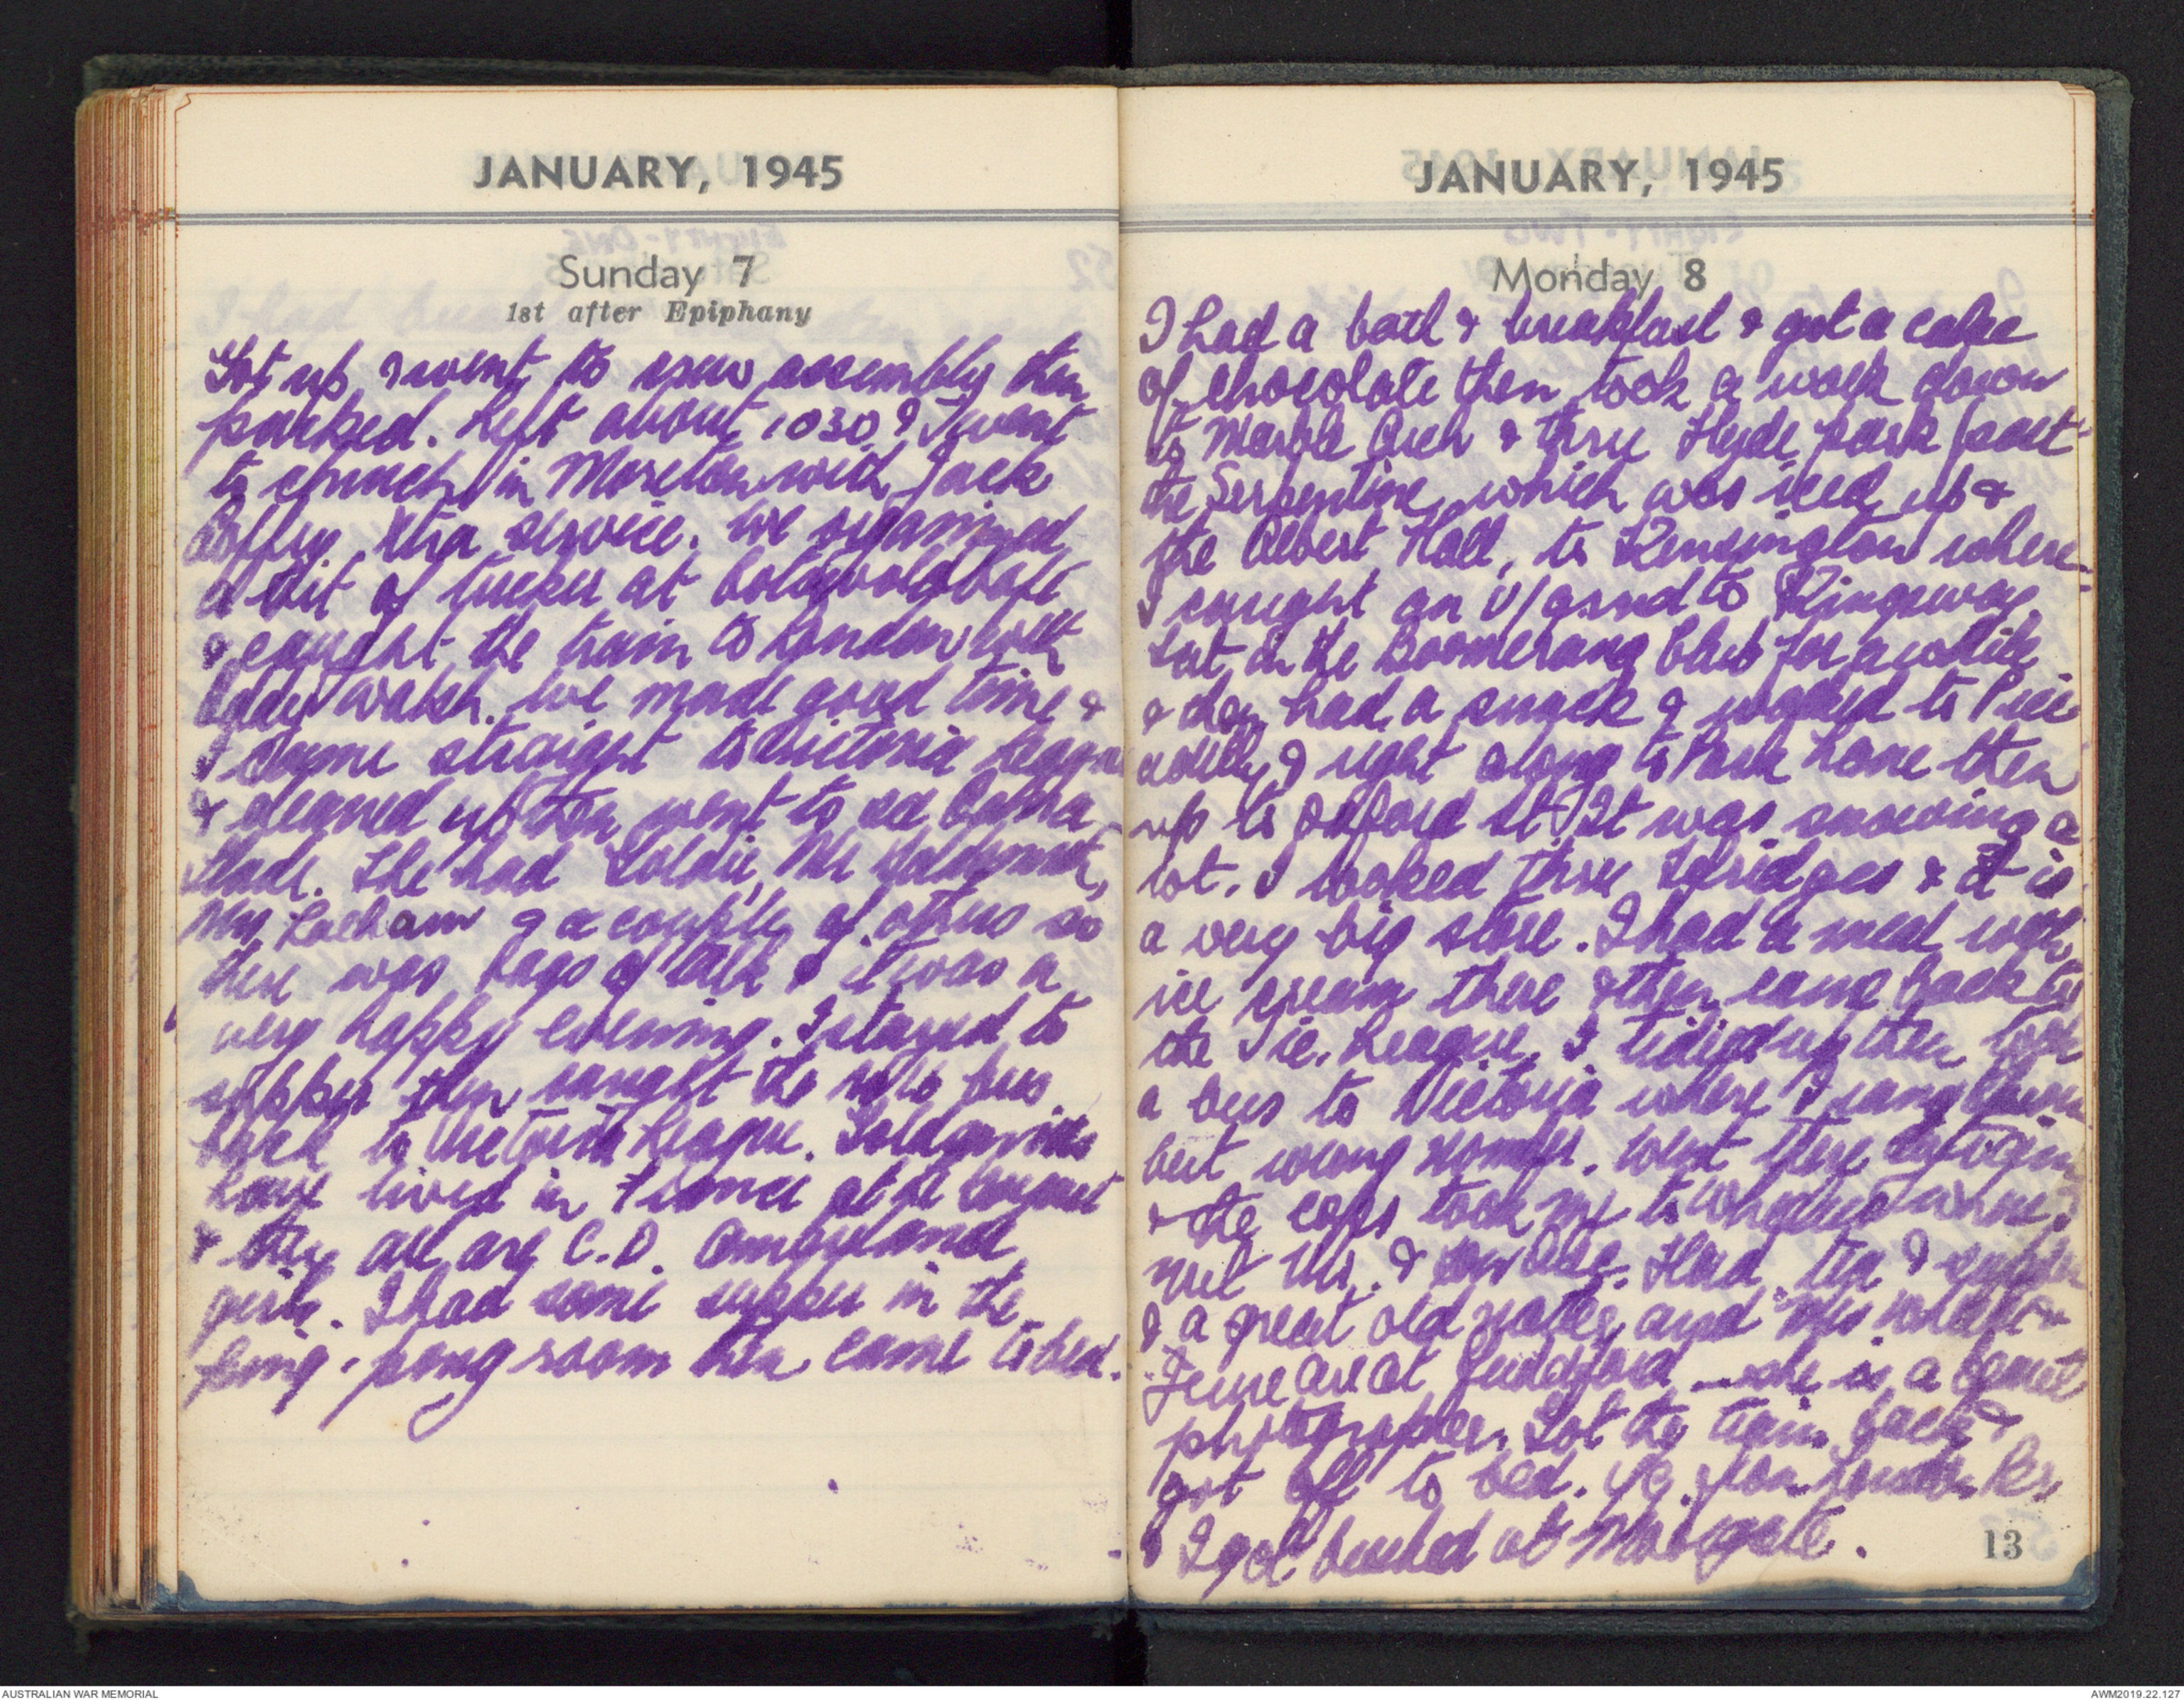 JANUARY, 1945
Sunday 7
1st after Epiphany
Got up & went to crew assembly then
packed. Left about 1030 & I went
to church in Moreton with Jack
service. We organised
a bit of tucker at Cotswold Cafe
& caught the train to London with
Walsh. We made good time &
I came straight to Victoria League
& cleaned up then went to see
Slade. She had Goldie, Mr
Mrs Latham & a couple of others so
there was bags of talk & it was a
very happy evening. I stayed to
supper then caught the bus
back to Victoria League.
have lived in France
& they all are C.D. ambulance
girls. I had some supper in the
ping-pong room then came to bed.
JANUARY, 1945
Monday 8
I had a bath & breakfast & got a cake
of chocolate then took a walk down
to Marble Arch & thru Hyde park past
the Serpentine which was iced up &
the Albert Hall, to Kensington where
I caught an U/grnd to Kingsway.
Sat in the Boomerang Club for a while
& then had a snack & walked to Picc
adilly & right along to Park Lane then
up to Oxford St. It was snowing a
lot. I looked thru Selridges & it is
a very big store. I had a meal with
ice cream there & then came back to
the Vic. League. I tidied up then took
a bus to Victoria where I rang
but wrong number. Went there
& the cops took me to where I
met Mr. & Had tea & supper
& a great old natter and Mrs &
June are at Guildford - she is a
photographer. Got the train back &
got off to bed. from London
& I got bushed at Margate.
13
AUSTRALIAN WAR MEMORIAL
AWM2019.22.127